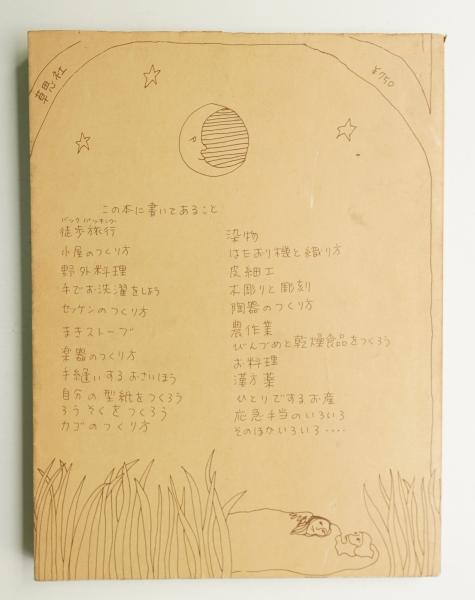 草思社
¥1750
この本に書いてあること
バックパッキング
徒歩旅行
小屋のつくり方
野外料理
手でお洗濯をしよう
セッケンのつくり方
まきストーブ
楽器のつくり方
手縫いするおさいほう
自分の型紙をつくろう
ろうそくをつくろう
カゴのつくり方
染物
はたおり機と織り方
皮細工
木彫りと彫刻
陶器のつくり方
農作業
びんづめと乾燥食品をつくろう
お料理
漢方薬
ひとりでするお産
応急手当のいろいろ
そのほかいろいろ・・・・